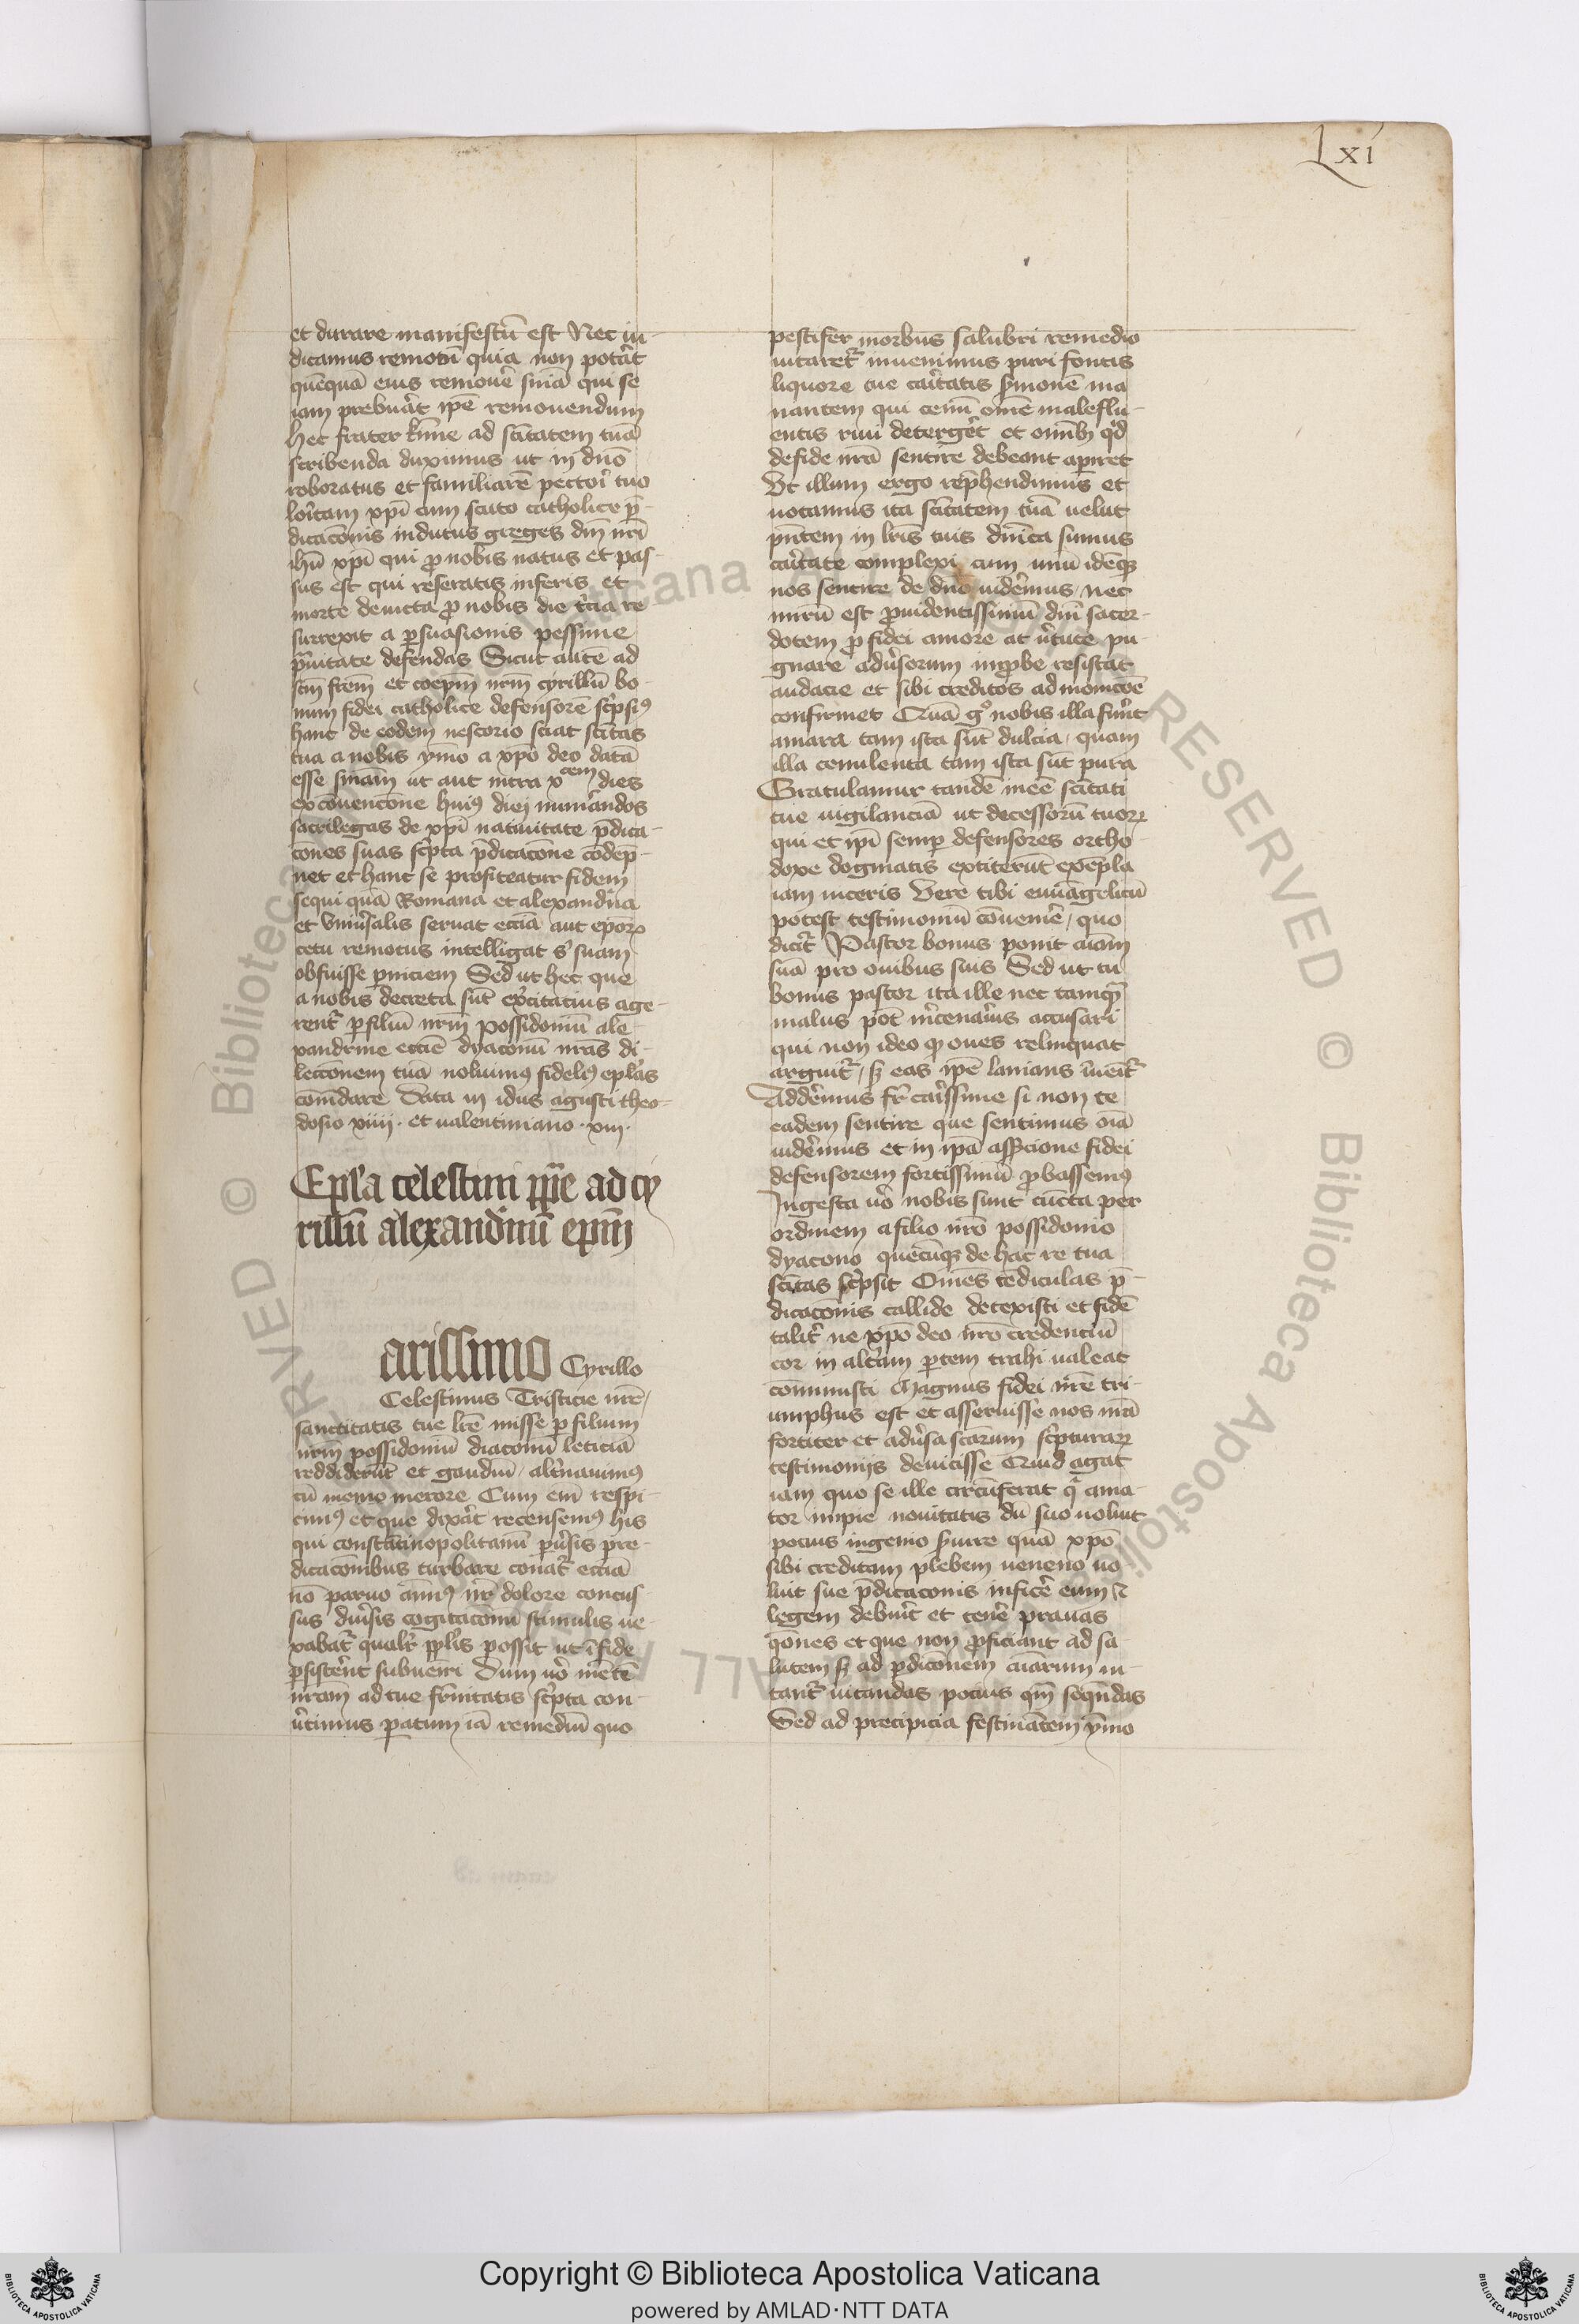 Lxi
et durare manifestū est Nec iu-
dicamus remotū quia non pot̄at
quēquā eius remouē sn̄ia qui se
iam prebuāt ip̄e remouendum
Hec frater kr̄me ad sc̄itatem tuā
scribenda duximus ut in dn̄o
roboratus et familiarē pectori tuo
loricam xp̄i cum scuto catholice p̄-
dicacōnis indutus greges dn̄i nr̄i
ihū xp̄i qui pro nobis natus et pas-
sus est qui reseratis inferis et
morte deuicta pro nobis die t̄cia re
surrexit a persuasionis pessime
prauitate defendas Sicut autē ad
sc̄m fr̄em et coep̄m nr̄m cyrillū bo-
num fidei catholice defensorē sc̄psiꝰ
hanc de eodem nestorio sciat sc̄itas
tua a nobis ymo a xp̄o deo datā
esse sn̄iam ut aut intra xcem dies
ex cōuencōne huiꝰ diei num̄andos
sacrilegas de xp̄i natiuitate p̄dica-
cōnes suas sc̄pta p̄dicacōne cōdep̄-
net et hanc se profiteatur fidem
sequi quā Romana et alexandr̄ia
et vniūsalis seruat ecc̄ia aut ep̄orꝝ
cetu remotus intelligat s̄ suam
obfuisse p̄niciem Sed ut hec que
a nobis decreta sūt ex̄citatius age-
rent̄ per filiū nr̄m possidoniū ale-
xandrine ecc̄ie dyaconū nr̄as di-
leccōnem tuā noluimꝰ fideliꝰ ep̄las
comēdare Data iii idus agusti theo-
dosio xiiii. et ualentiniano .xiii.
Epl̄a celestini pp̄e ad cy
rillū alexandrinū ep̄m
arissimo Cyrillo
Celestinus Tristicie nr̄e
sanctitatis tue lr̄e misse per filium
nr̄m possidoniū diaconū leticiā
reddiderūt et gaudiū alt̄nauimꝰ
cū memo merore Cum em̄ respi-
cimꝰ et que dixāt recensemꝰ his
qui constātinopolitanū perūsis pre-
dicacōnibus turbare conat̄ ecc̄iā
nō paruo an̄imꝰ nr̄ dolore concus
sus diūsis cogitacōnū stimulis ue-
xabat̄ qualr̄ pp̄lis possit ut ī fide
persistēnt subuēiri Dum uō mētē
nr̄am ad tue fr̄nitatis sc̄pta con-
ūtimus paratum iā remediū quo
pestifer morbus salubri remedio
uitaret̄ inuenimus puri fontis
liquore tue cār̄itatis s̄monē ma
nantem qui cenū om̄e maleflu-
entis riui detergēt et om̄ibꝫ qd̄
de fide nr̄a sentire debeant aperiret
Vt illum ergo rep̄hendimus et
notamus ita sc̄itatem tuā uelut
pn̄tem in lr̄is tuis dn̄ica sumus
cār̄itate complexi cum unū idēqꝫ
nos sentire de dn̄o uidēmus nec
mirū est prouidentissimū dn̄i sacer-
dotem pro fidei amore at ūtute pu-
gnare adūsorum inprobe resistat
audacie et sibi creditos ad monicōe
confirmet Quā gͦ nobis illa fuēt
amara tam ista sūt dulcia quam
illa cenulenta tam ista sūt pura
Gratulamur tandē inee sc̄itati
tue uigilanciā ut decessorū tuorꝝ
qui et ip̄i semper defensores ortho-
doxe dogmatis extiterūt exēpla
iam uiceris Vere tibi euuāgelicū
potest testimoniū cōuenīe quo
dicit̄ Pastor bonus ponit aīam
suā pro ouibus suis Sed ut tu
bonus pastor ita ille nec tamq̄
malus pōt m̄cenār̄ius accusari
qui non ideo quod oues relinquat
arguit̄ sꝫ eas ip̄e lanians īueīt̄
Addēmus fr̄ cār̄issime si non te
eadem sentire que sentimus oīa
uidēmus et in ip̄a asscione fidei
defensorem fortissimū probassemꝰ
Ingesta uō nobis sunt cūcta per
ordinem a filio nr̄o possidonio
dyacono quecūqꝫ de hac re tua
sc̄itas sc̄psit Om̄es tēdiculas p̄-
dicacōnis callide detexisti et fidē
talit̄ ne xp̄o deo nr̄o credentiū
cor in alt̄am partem trahi ualeat
cōmunisti Magnus fidei nr̄e tri-
umphus est et asseruisse nos nr̄a
fortiter et adūsa sc̄arum sc̄pturarꝝ
testimonijs deuicisse Quid agat
iam quo se ille circūferat q̄ ama-
tor impie nouitatis dū suo noluit
pocius ingenio s̄uire quā xp̄o
sibi creditam plebem ueneno uo
luit sue p̄dicaconis inficē eum ī
legem debuit et tenē prauas
qōnes et que non proficiant ad sa
lutem sꝫ ad perdicōnem aīarum in-
tant̄ uitandas pocius qm̄ seqn̄das
Sed ad precipicia festinātem ymo
Copyright © Biblioteca Apostolica Vaticana
powered by AMLAD·NTT DATA